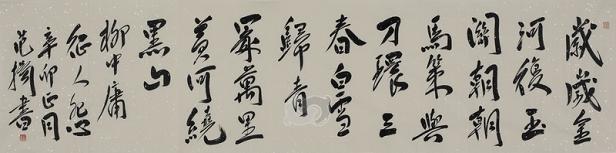 歲歲金
河復玉
關朝朝
馬策與
刀環三
春白雪
歸青
冢萬里
黃河繞
黑山
柳中庸
征人怨
辛卯正月
范揚書